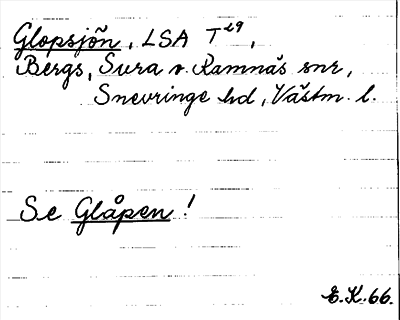 Glopsjön, LSA T 29,
Bergs, Sura o. Ramnäs snr,
Snevringe hd, Västm. l.
Se Glåpen!
E.K. 66.